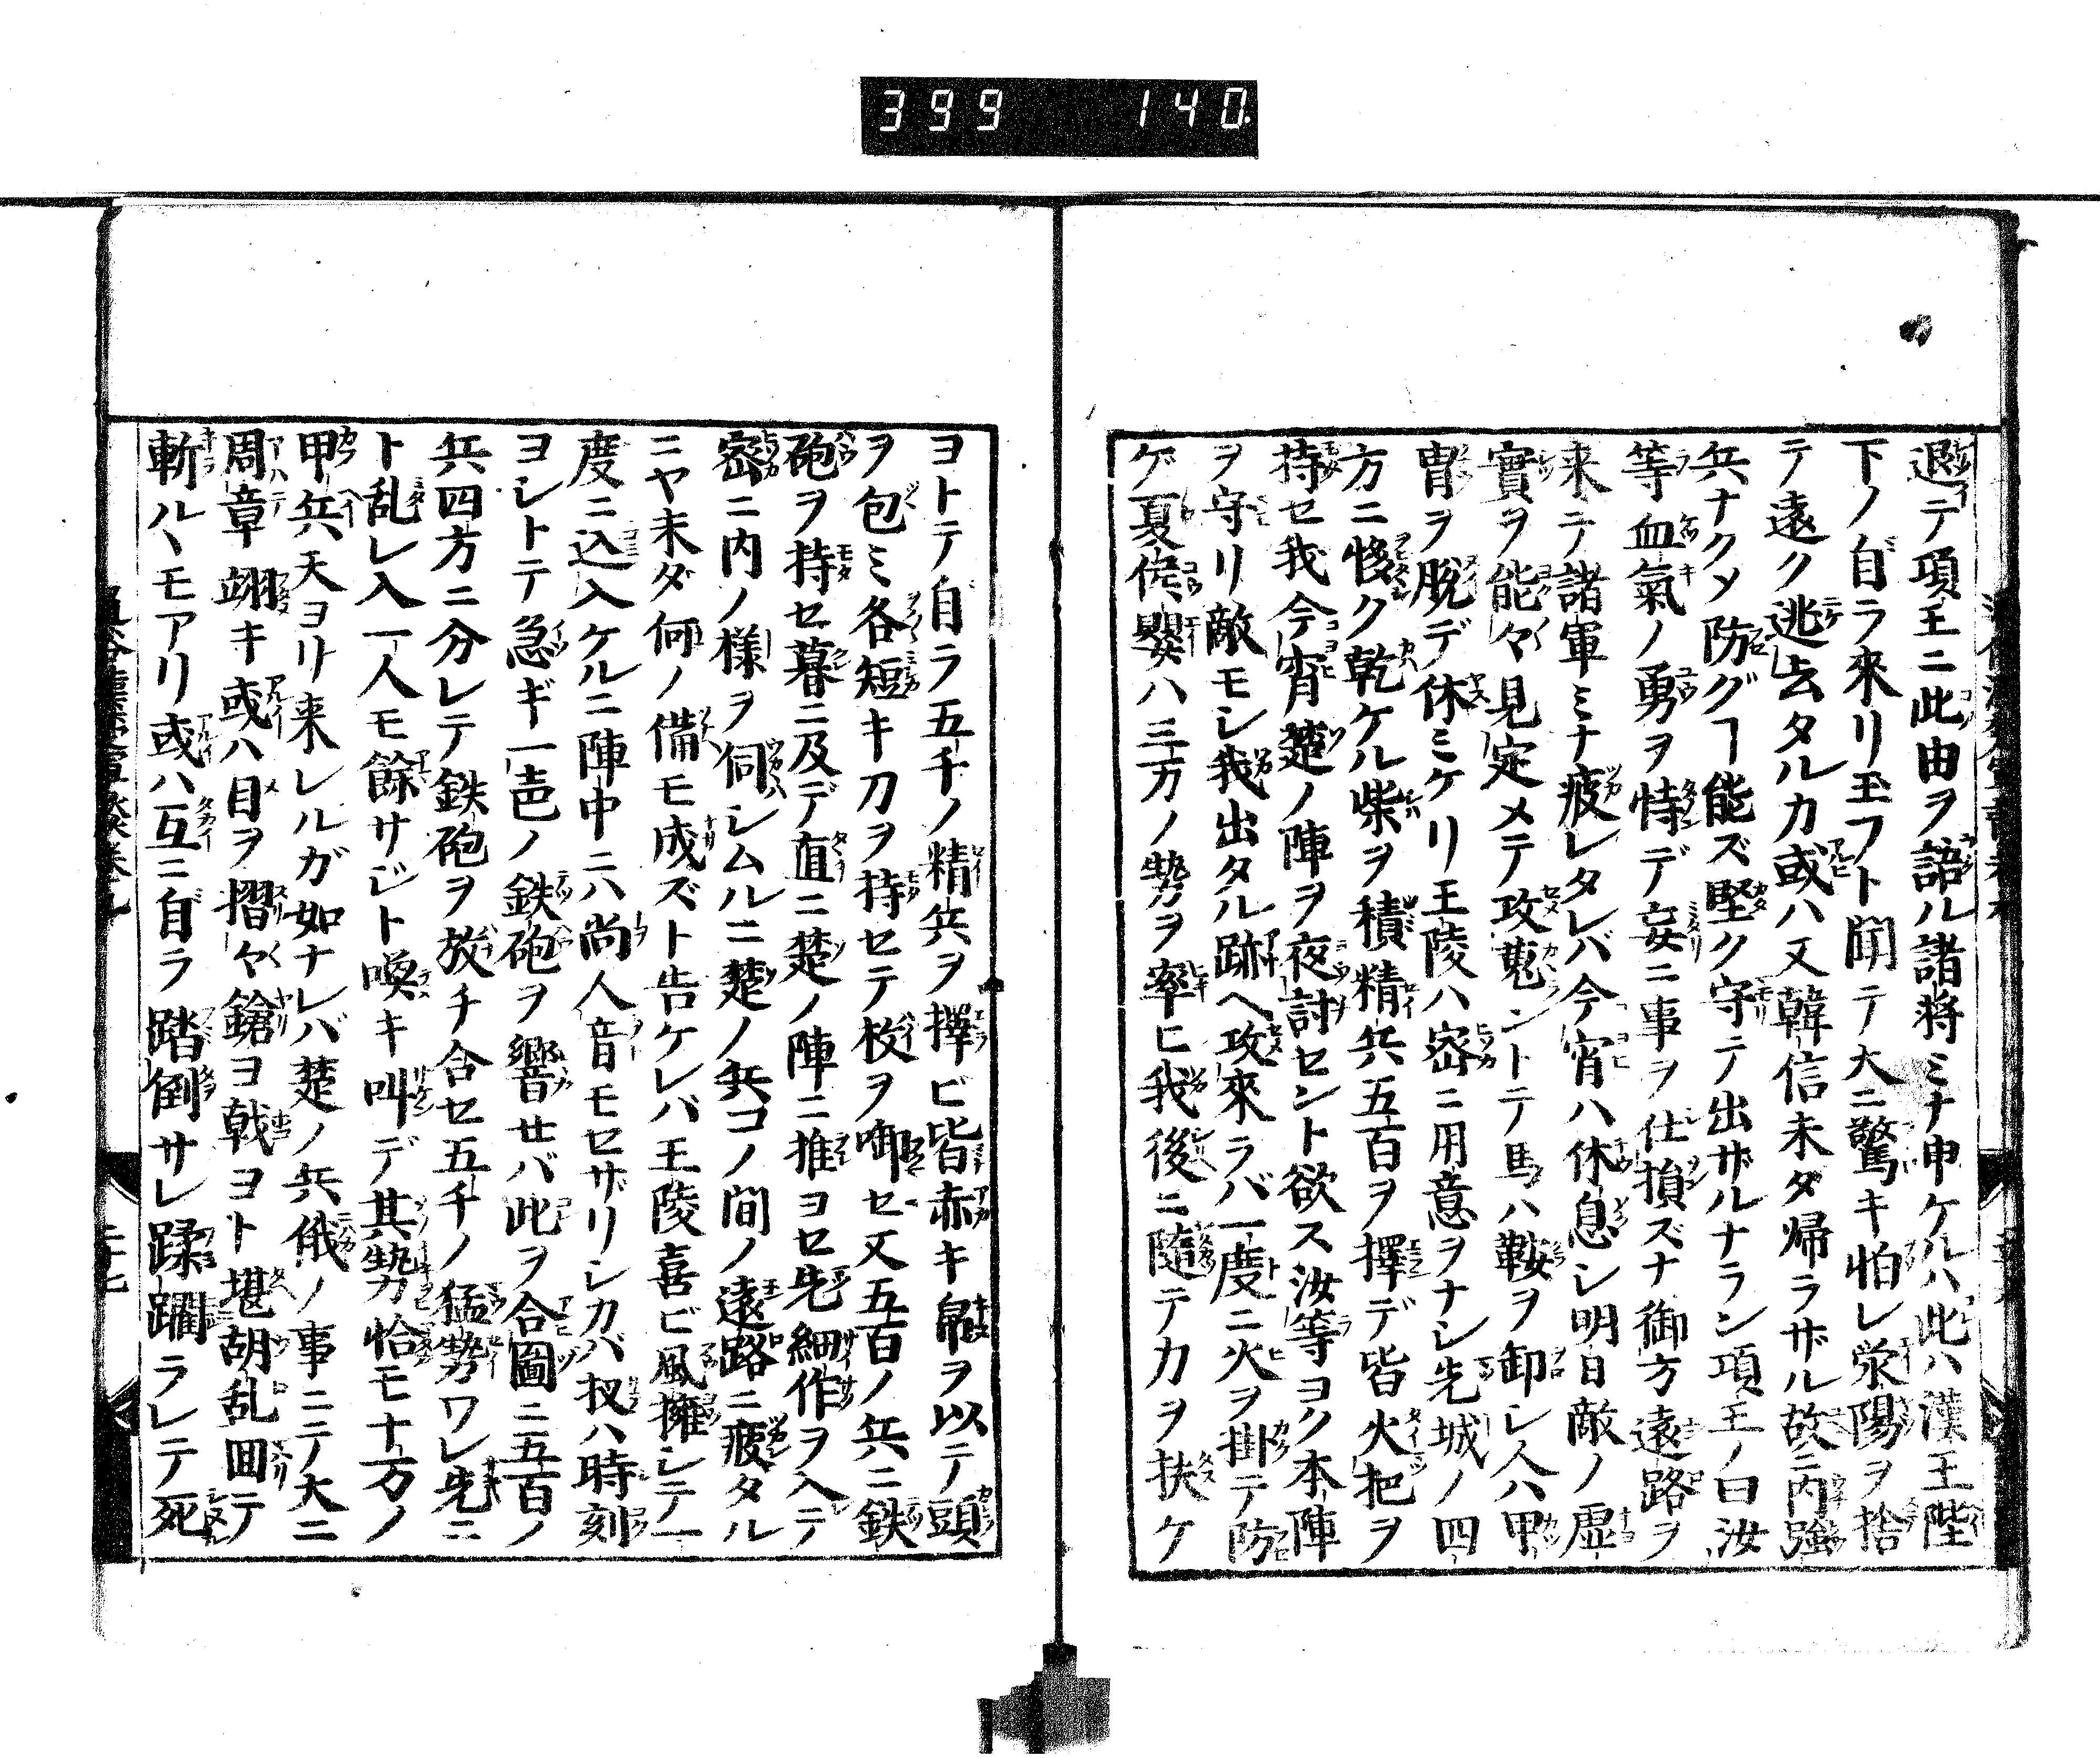 399 140.
退テ項王ニ此由ヲ語ル諸将ミナ申ケルハ此ハ漢王陛
下ノ自ラ來リ玉フト聞テ大ニ驚キ怕レ滎陽ヲ捨
テ遠ク逃去タルカ或ハ又韓信未タ帰ラザル故ニ内強
兵ナクメ防グヿ能ズ堅ク守テ出ザルナラン項王ノ曰汝
等血氣ノ勇ヲ恃デ妄ニ事ヲ仕損ズナ御方遠路ヲ
来テ諸軍ミナ疲レタレバ今宵ハ休息シ明日敵ノ虚
實ヲ能々見定メテ攻敺ントテ馬ハ鞍ヲ卸シ人ハ甲
冑ヲ脱デ休ミケリ王陵ハ密ニ用意ヲナシ先城ノ四
方ニ悛ク乾ケル柴ヲ積精兵五百ヲ擇デ皆火把ヲ
持セ我今宵楚ノ陣ヲ夜討セント欲ス汝等ヨク本陣
ヲ守リ敵モシ我出タル跡ヘ攻來ラバ一度ニ火ヲ掛テ防
ゲ夏侯嬰ハ三万ノ勢ヲ率ヒ我後ニ隨テ力ヲ扶ケ
ヨトテ自ラ五千ノ精兵ヲ擇ビ皆赤キ帛ヲ以テ頭
ヲ包ミ各短キ刀ヲ持セテ枚ヲ啣セ又五百ノ兵ニ鉄
砲ヲ持セ暮ニ及デ直ニ楚ノ陣ニ推ヨセ先細作ヲ入テ
密ニ内ノ様ヲ伺シムルニ楚ノ兵コノ間ノ遠路ニ疲タル
ニヤ未ダ何ノ備モ成ズト告ケレバ王陵喜ビ風擁シテ一
度ニ込入ケルニ陣中ニハ尚人音モセザリシカバ扠ハ時刻
ヨシトテ急ギ一声ノ鉄砲ヲ響セバ此ヲ合圖ニ五百ノ
兵四方ニ分レテ鉄砲ヲ放チ合セ五千ノ猛勢ワレ先ニ
ト乱レ入一人モ餘サジト喚キ叫デ其勢恰モ十万ノ
甲兵天ヨリ来レルガ如ナレバ楚ノ兵俄ノ事ニテ大ニ
周章翊キ或ハ目ヲ摺々鎗ヨ戟ヨト堪胡乱囬テ
斬ルヽモアリ或ハ互ニ自ラ踏倒サレ蹂躙ラレテ死